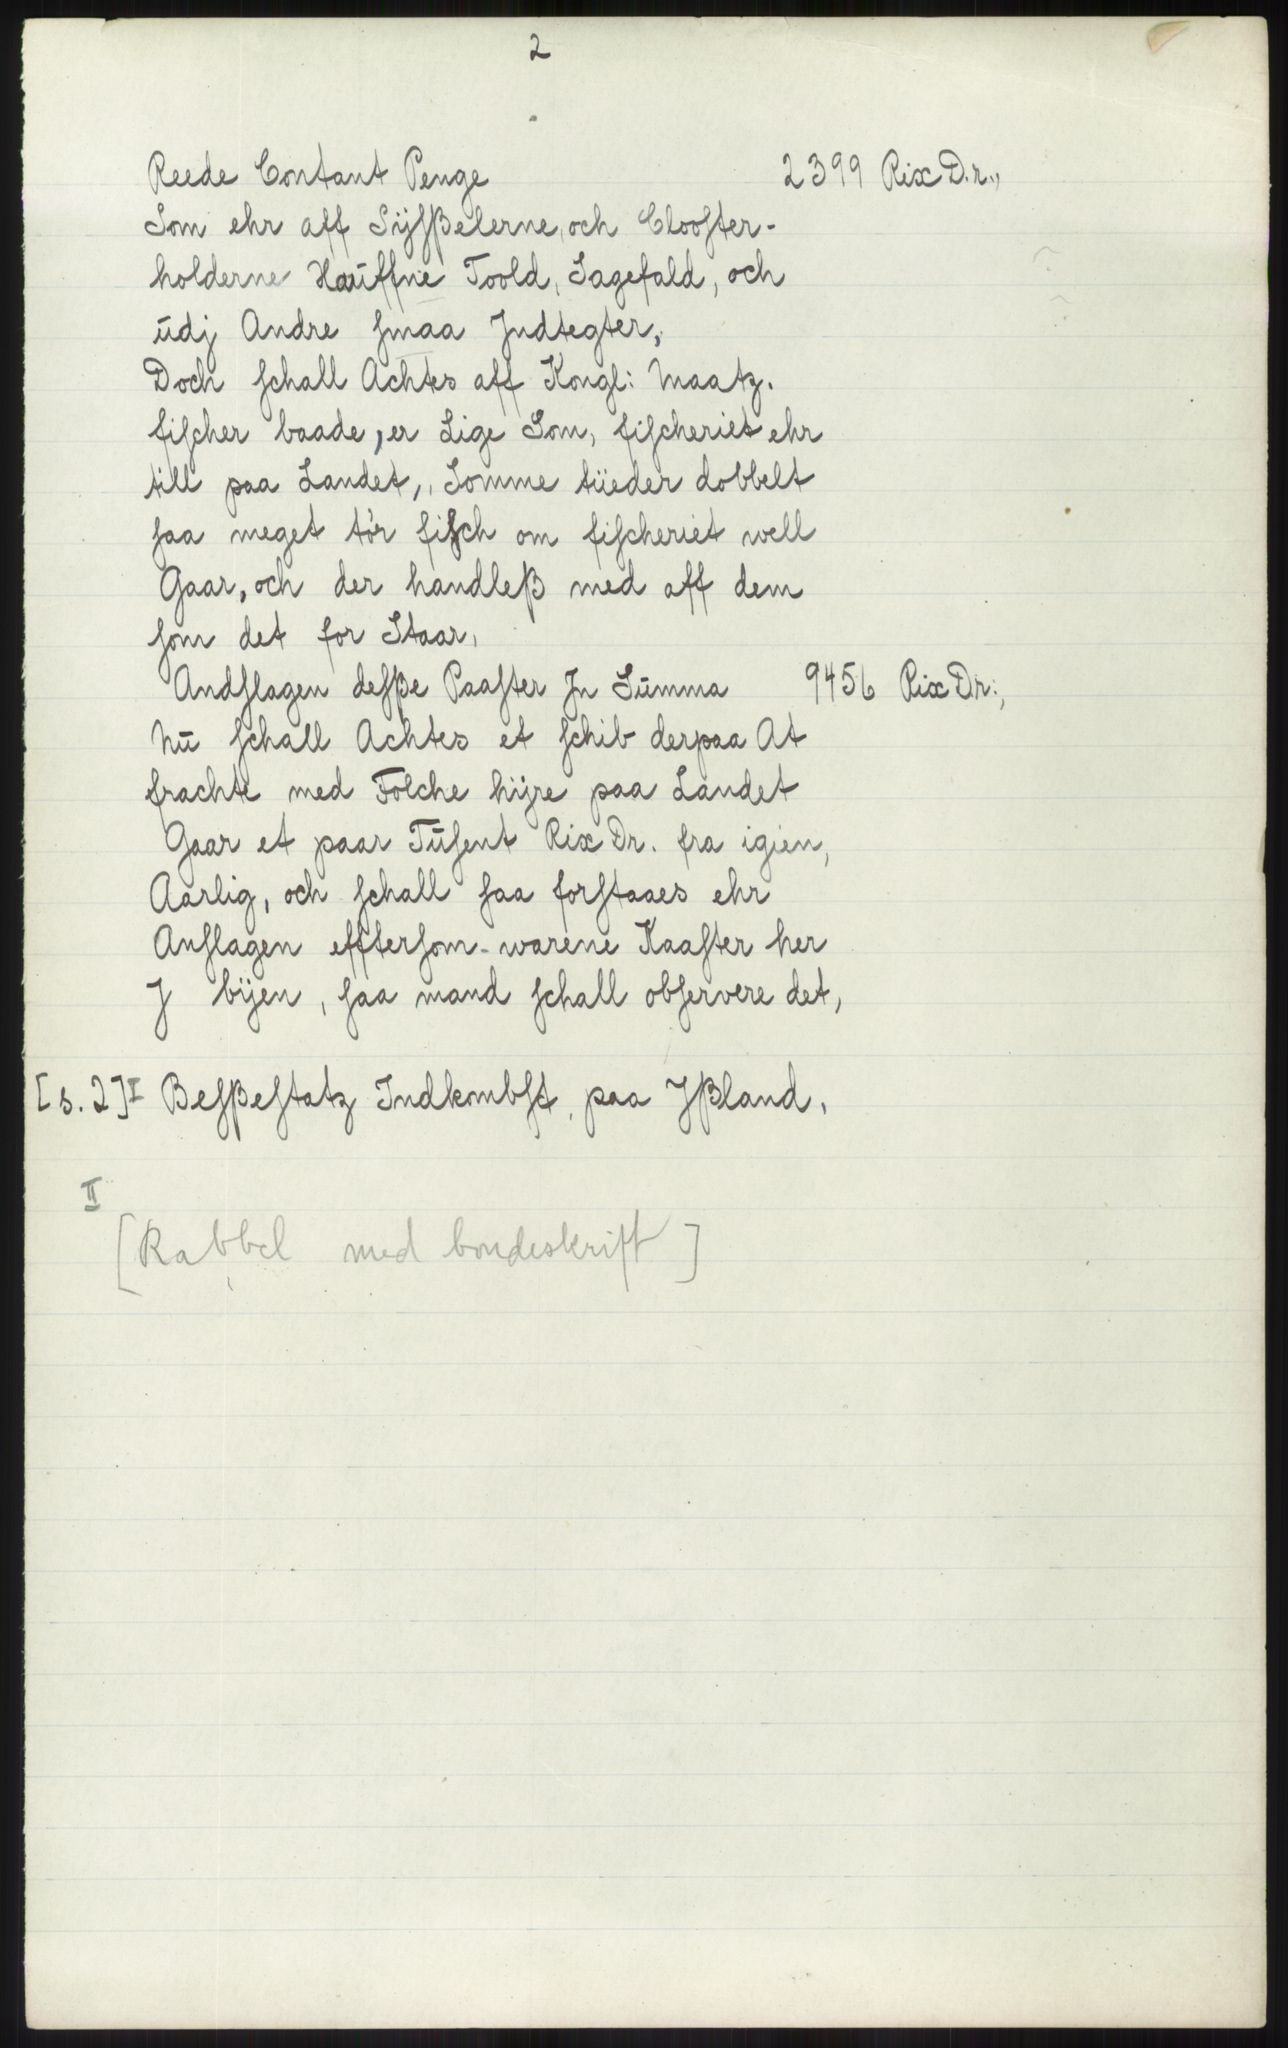 2
Reede Contant Penge 2399 Rix D.r.,
Som ehr aff Sÿſßelerne, och Clooſter-
holderne Hauffne Toold, Sagefald, och
udj Andre ſmaa Jndtegter,
Doch ſchall Achtes aff Kongl: Maatz.
fiſcher baade, er Lige Som, fiſcheriet ehr
till paa Landet, Somme tüeder dobbelt
ſaa meget tör fiſch om fiſcheriet well
Gaar, och der handleß med aff dem
ſom det for Staar,
Andſlagen deſße Paaſter Jn Summa 9456 Rix Dr:,
Nu ſchall Achtes et ſchib derpaa At
frachte med Folche hÿre paa Landet
Gaar et paar Tuſent Rix Dr. fra igien,
Aarlig, och ſchall ſaa forſtaaes ehr
Anſlagen effterſom warene Kaaſter her
J bÿen, ſaa mand ſchall obſervere det,
[s. 2] I Beſßeſtatz Indkombſt paa Jßland,
II
[Rabbel med bondeskrift]